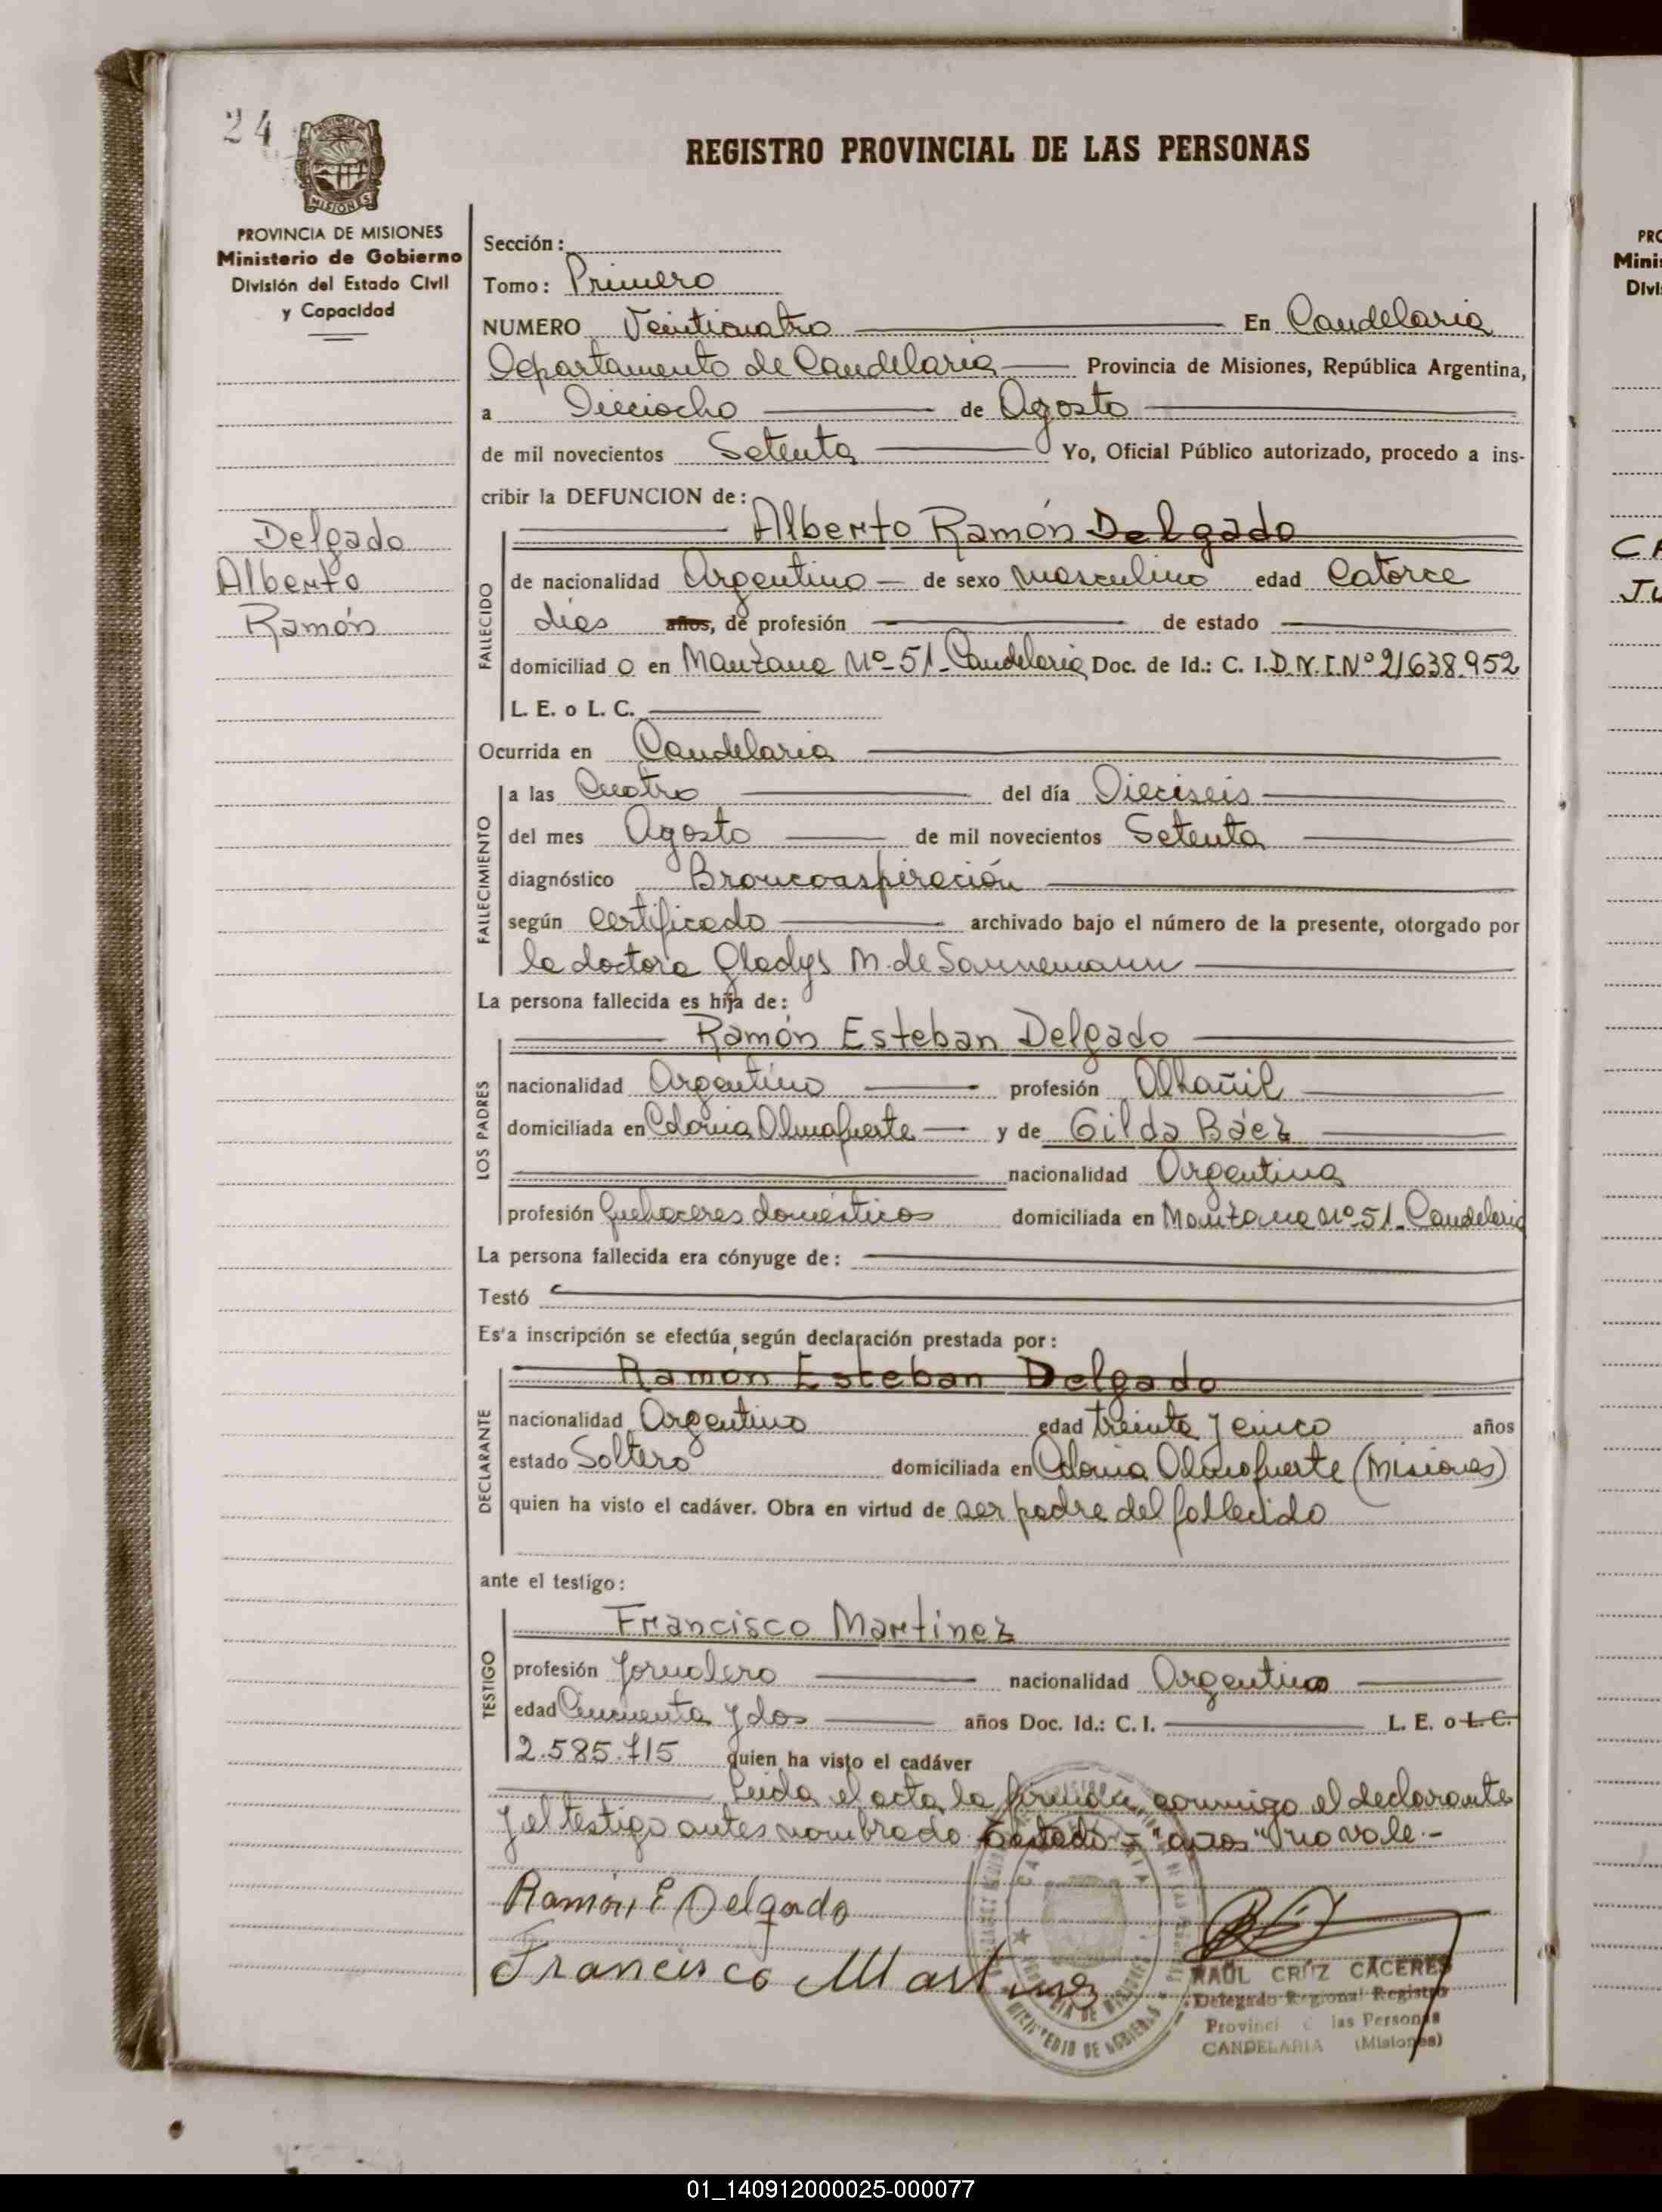 24
PROVINCIA DE MISIONES
Ministerio de Gobierno
División del Estado Civil
y Capacidad
Delgado
Alberto
Ramón
REGISTRO PROVINCIAL DE LAS PERSONAS
Sección:
Tomo: Primero
NUMERO Veinticuatro En Candelaria
Departamento de Candelaria Provincia de Misiones, República Argentina,
a Dieciocho de Agosto
de mil novecientos Setenta Yo, Oficial Público autorizado, procedo a ins-
cribir la DEFUNCION de:
Alberto Ramón Delgado
FALLECIDO
de nacionalidad Argentino de sexo masculino edad Catorce
días años, de profesión de estado
domiciliad o en Manzana Nº 51 - Candelaria Doc. de Id.: C. I. D.N.I. Nº 21638.952
L. E. o L. C.
Ocurrida en Candelaria
FALLECIMIENTO
a las Cuatro del día Dieciseis
del mes Agosto de mil novecientos Setenta
diagnóstico Broncoaspiración
según Certificado archivado bajo el número de la presente, otorgado por
la doctora Gladys M. de Sannemann
La persona fallecida es hija de:
Ramón Esteban Delgado
LOS PADRES
nacionalidad Argentino profesión Albañil
domiciliada en Colonia Almafuerte y de Gilda Báez
nacionalidad Argentina
profesión Quehaceres domésticos domiciliada en Manzana Nº 51 - Candelaria
La persona fallecida era cónyuge de:
Testó
Esta inscripción se efectúa según declaración prestada por:
Ramon Esteban Delgado
DECLARANTE
nacionalidad Argentino edad treinta y cinco años
estado Soltero domiciliada en Colonia Almafuerte (Misiones)
quien ha visto el cadáver. Obra en virtud de ser padre del fallecido
ante el testigo:
Francisco Martinez
TESTIGO
profesión Jornalero nacionalidad Argentino
edad Cincuenta y dos años Doc. Id.: C. I. L. E. o L. C.
2.585.715 quien ha visto el cadáver
Leida el acta la firman conmigo el declarante
y el testigo antes nombrado. Testado: "años" no vale.-
Ramón E Delgado
Francisco Martinez
RAÚL CRUZ CACERES
Delegado Regional Registro
Provincial las Personas
CANDELARIA (Misiones)
PRO
Minis
Divi
CA
JU
01_140912000025-000077